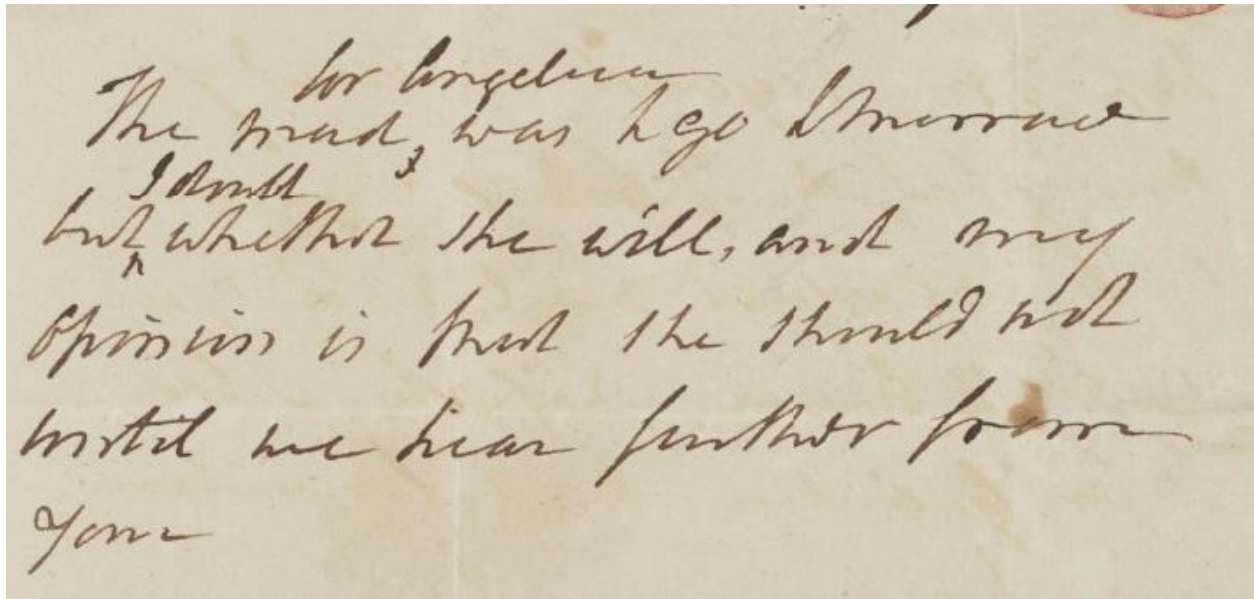 for Angelica
The maid, was to go tomorrow
I doubt
but whether she will, and my
opinion is that she should not
until we hear further from
you